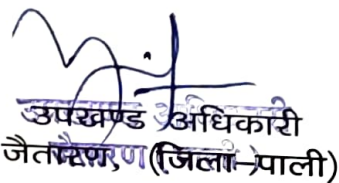 उपखण्ड अधिकारी
जैतारण, (जिला-पाली)